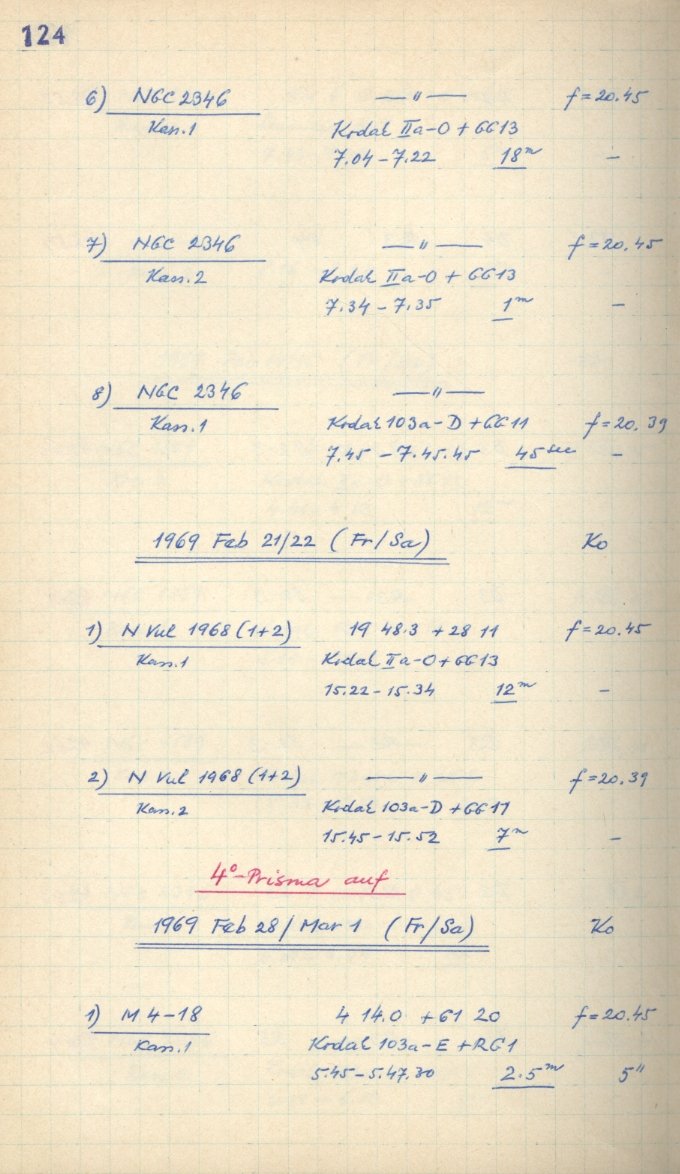 124
6) NGC 2346 — " — f = 20.45
Kass.1 Kodak IIa-O + GG13
7.04 – 7.22 18m –
7) NGC 2346 — " — f = 20.45
Kass.2 Kodak IIa-O + GG13
7.34 – 7.35 1m –
8) NGC 2346 — " —
Kass.1 Kodak 103a-D + GG11 f = 20.39
7.45 – 7.45.45 45sec –
1969 Feb 21/22 (Fr/Sa) Ko
1) N Vul 1968 (1+2) 19 48.3 +28 11 f = 20.45
Kass.1 Kodak IIa-O + GG13
15.22 – 15.34 12m –
2) N Vul 1968 (1+2) — " — f = 20.39
Kass.2 Kodak 103a-D + GG11
15.45 – 15.52 7m –
4°-Prisma auf
1969 Feb 28/Mar 1 (Fr/Sa) Ko
1) M 4-18 4 14.0 +61 20 f = 20.45
Kass.1 Kodak 103a-E + RG1
5.45 – 5.47.30 2.5m 5"